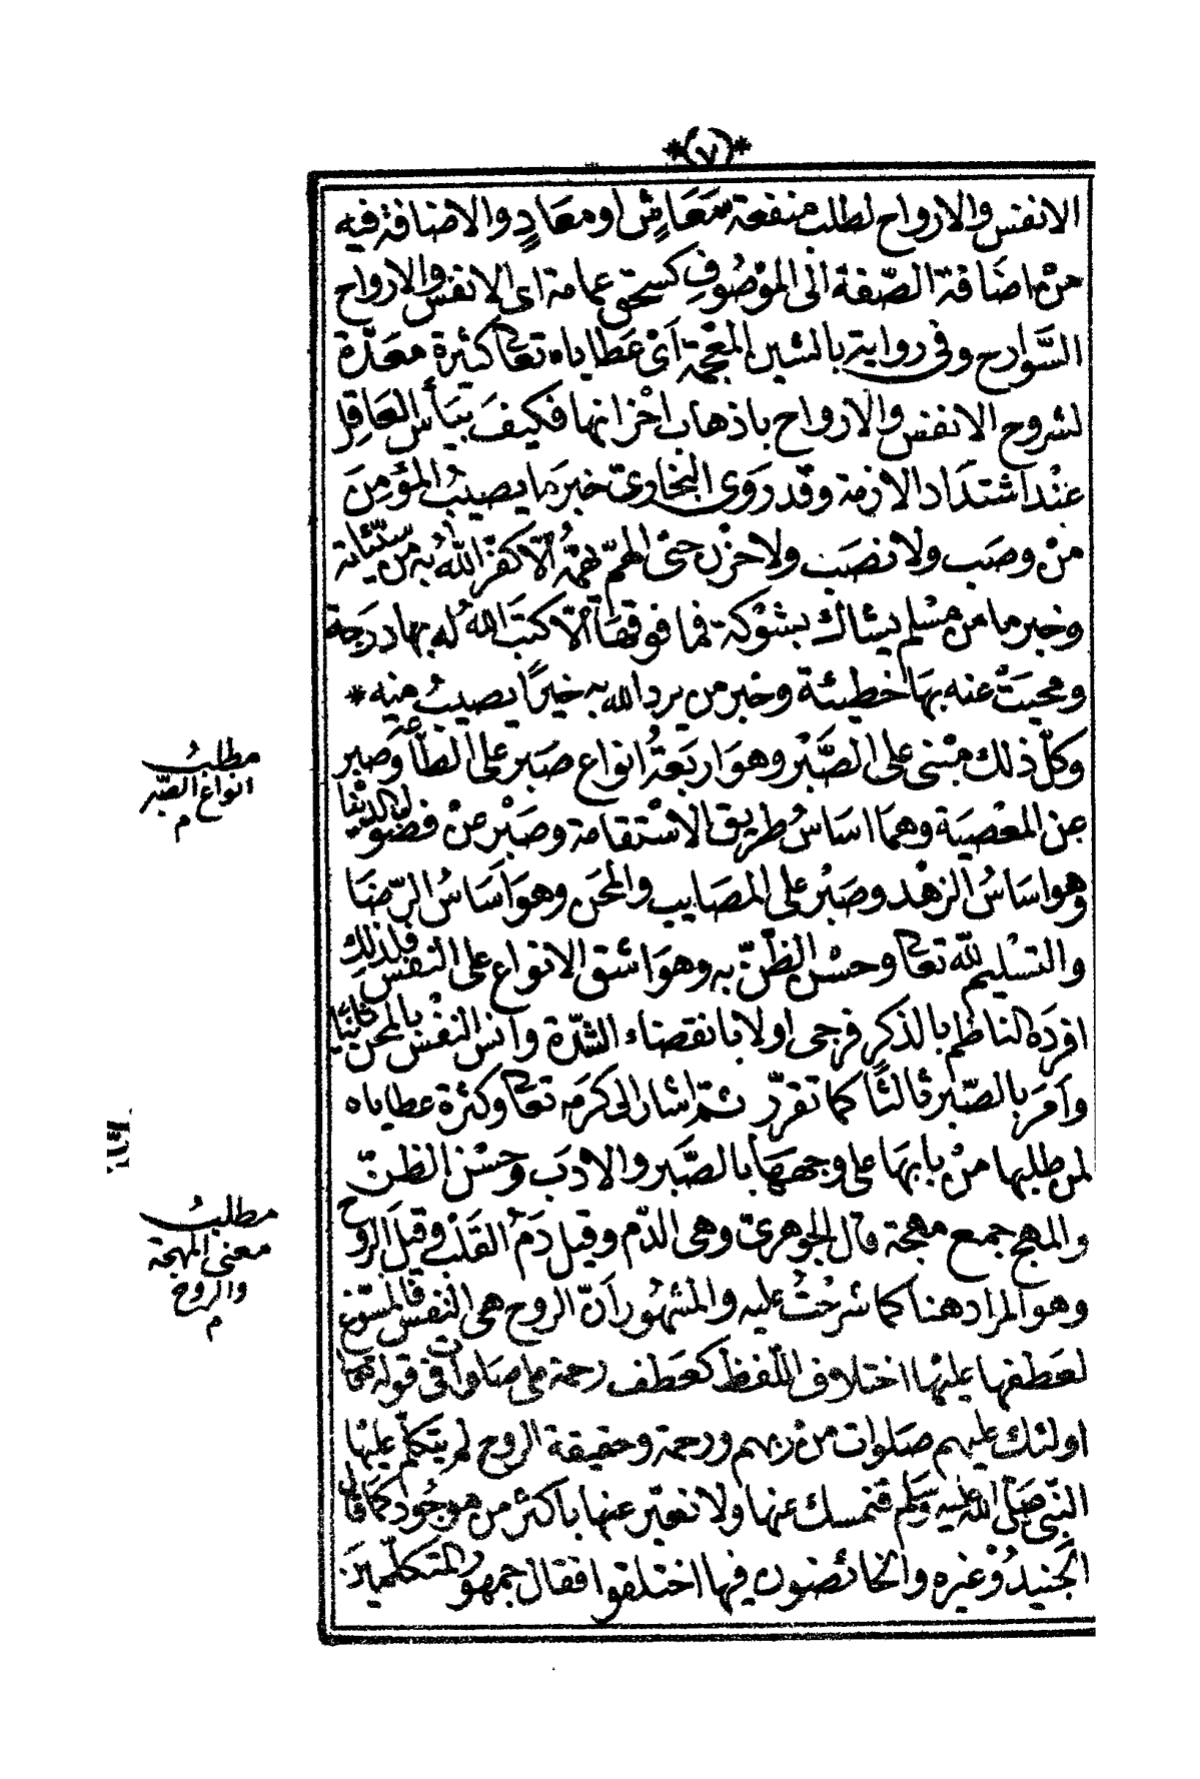 *(٧)*
الانفس والارواح لطلب منفعة مَعَاشٍ او معادٍ والاضافة فيه
من اضَافة الصّفة الى الموْصُوفِ كسحق عمامة اى الانفس والارواح
السَّوارح وفى رواية بالشين المعْجمة اَىْ عَطاياه تعالى كثيرة معَدّة
لشروح الانفس والارواح باذهاب احْزانها فكيفَ ييَأسُ العَاقِل
عنْد اشتدَاد الازمة وقد رَوى البخارىّ خبرَ ما يصيبُ المؤمِنَ
منْ وصَب ولا نصَب ولا حزْن حتى الهمّ يهمُّهُ الّا كفّر اللّٰهُ بهِ من سيّئاته
وخبر ما من مسْلم يشاكُ بشوْكة فما فوقهَا الّا كتبَ اللّٰهُ له بها درَجة
ومحيَتْ عنه بهَا خطيئة وخبر من يرد الله به خيرًا يصيبُ منه *
وكلّ ذلك مبْنى على الصَّبْر وهوَ اربَعَةُ انواع صَبر على الطاعَة وصبر
عن المعْصيَة وهمَا اسَاسُ طريق الاسْتقامة وصَبْر عنْ فضول الدنْيا
وهو اساسُ الزهْد وصَبْر على المصَايب والمحَن وهوَ اَسَاسُ الرّضَا
والتسْليم للّٰه تعالى وحسْن الظنّ به وهوَ اشق الانواع على النفس فلذلك
افردَه الناظم بالذكر فرجى اولا بانقضاء الشدّة وآنس النفْس بالمحن ثانيًا
وأمَرَ بالصّبر ثالثًا كما تقرّر ثمّ اشار الى كرَمه تعالى وكثرة عطاياه
لمن طلبها منْ بابهَا على وجههَا بالصَّبر والادَب وحسْن الظنّ
والمهج جمع مهْجة قال الجوهرىّ وهى الدّم وقيل دَمُ القلب وقيل الروح
وهو المراد هنا كما شرحْتُ عليه والمشهُور اَنّ الروح هى النفس فالمسوّغ
لعَطفها عليْها اختلاف اللّفظ كعَطف رحمة على صَلوات فى قوله تعالى
اولئك عليهم صَلوات منْ ربهم ورحمة وحقيقة الروح لم يتكلّم عليْها
النّبى صَلّى اللّٰه عليه وسَلّم فنمسك عنها ولا نعبّر عنها باكثر من موجُود كما قال
الجَنيدُ وغيره والخائضون فيها اختلفوا فقال جمهور المتكلّمينَ
مطلبُ
انواع الصّبر
م
مطلبُ
معنى المهجة
والروح
م